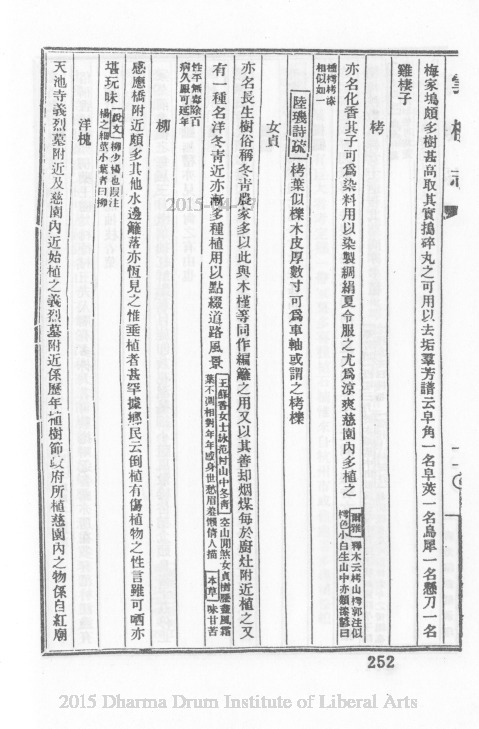 梅家塢頗多樹甚高取其實搗碎丸之可用以去垢羣芳譜云皁角一名皁莢一名烏犀一名懸刀一名
雞棲子
栲
亦名化香其子可爲染料用以染製綢絹夏令服之尤爲涼爽慈園內多植之 爾雅 釋木云栲山樗郭注似
樗色小白生山中亦類漆諺曰
櫄樗栲漆
相似如一
陸璣詩疏 栲葉似櫟木皮厚數寸可爲車軸或謂之栲櫟
女貞
亦名長生樹俗稱冬青農家多以此與木槿等同作編籬之用又以其善却烟煤每於廚灶附近植之又
有一種名洋冬青近亦漸多種植用以點綴道路風景 王蘇香女士詠范村山中冬青 空山閒煞女貞樹歷盡風霜
葉不凋相對年年感身世愁眉羞懶倩人描 本草 味甘苦
性平無毒除百
病久服可延年
柳
感應橋附近頗多其他水邊籬落亦恆見之惟垂植者甚罕據鄉民云倒植有傷植物之性言雖可哂亦
堪玩味 說文 柳少楊也段注
楊之細莖小葉者曰柳
洋槐
天池寺義烈墓附近及慈園內近始植之義烈墓附近係歷年植樹節政府所植慈園內之物係自紅廟
252
2015-04-17
2015 Dharma Drum Institute of Liberal Arts